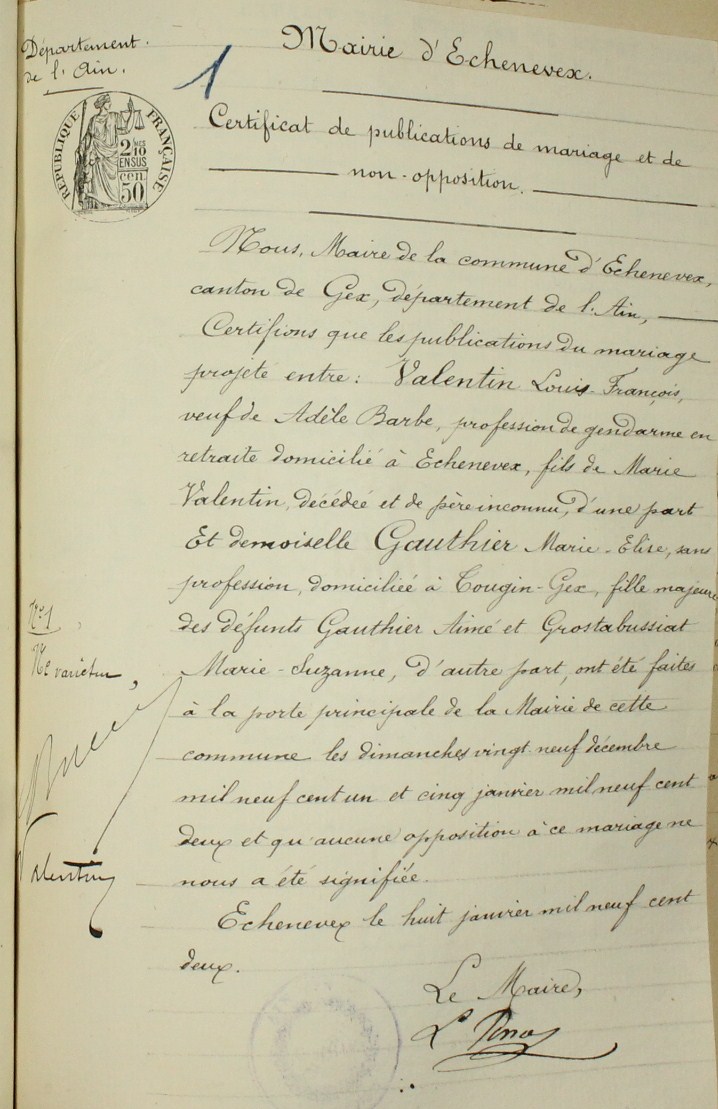 Département
de l'Ain.
1
Mairie d'Echenevex.
RÉPUBLIQUE FRANÇAISE
2/10
EN SUS
50
cen
Certificat de publications de mariage et de
non-opposition.
Nous, Maire de la commune d'Echenevex,
canton de Gex, département de l'Ain,
Certifions que les publications du mariage
projeté entre: Valentin Louis-François,
veuf de Adèle Barbe, profession de gendarme en
retraite domicilié à Echenevex, fils de Marie
Valentin, décédée et de père inconnu, d'une part
Et demoiselle Gauthier Marie-Elise, sans
profession, domiciliée à Tougin-Gex, fille majeure
des défunts Gauthier Aimé et Grostabussiat
Marie-Suzanne, d'autre part, ont été faites
à la porte principale de la Mairie de cette
commune les dimanches vingt neuf décembre
mil neuf cent un et cinq janvier mil neuf cent
deux et qu'aucune opposition à ce mariage ne
nous a été signifiée.
Echenevex le huit janvier mil neuf cent
deux.
Le Maire,
N° 1
Ne varietur
Valentin